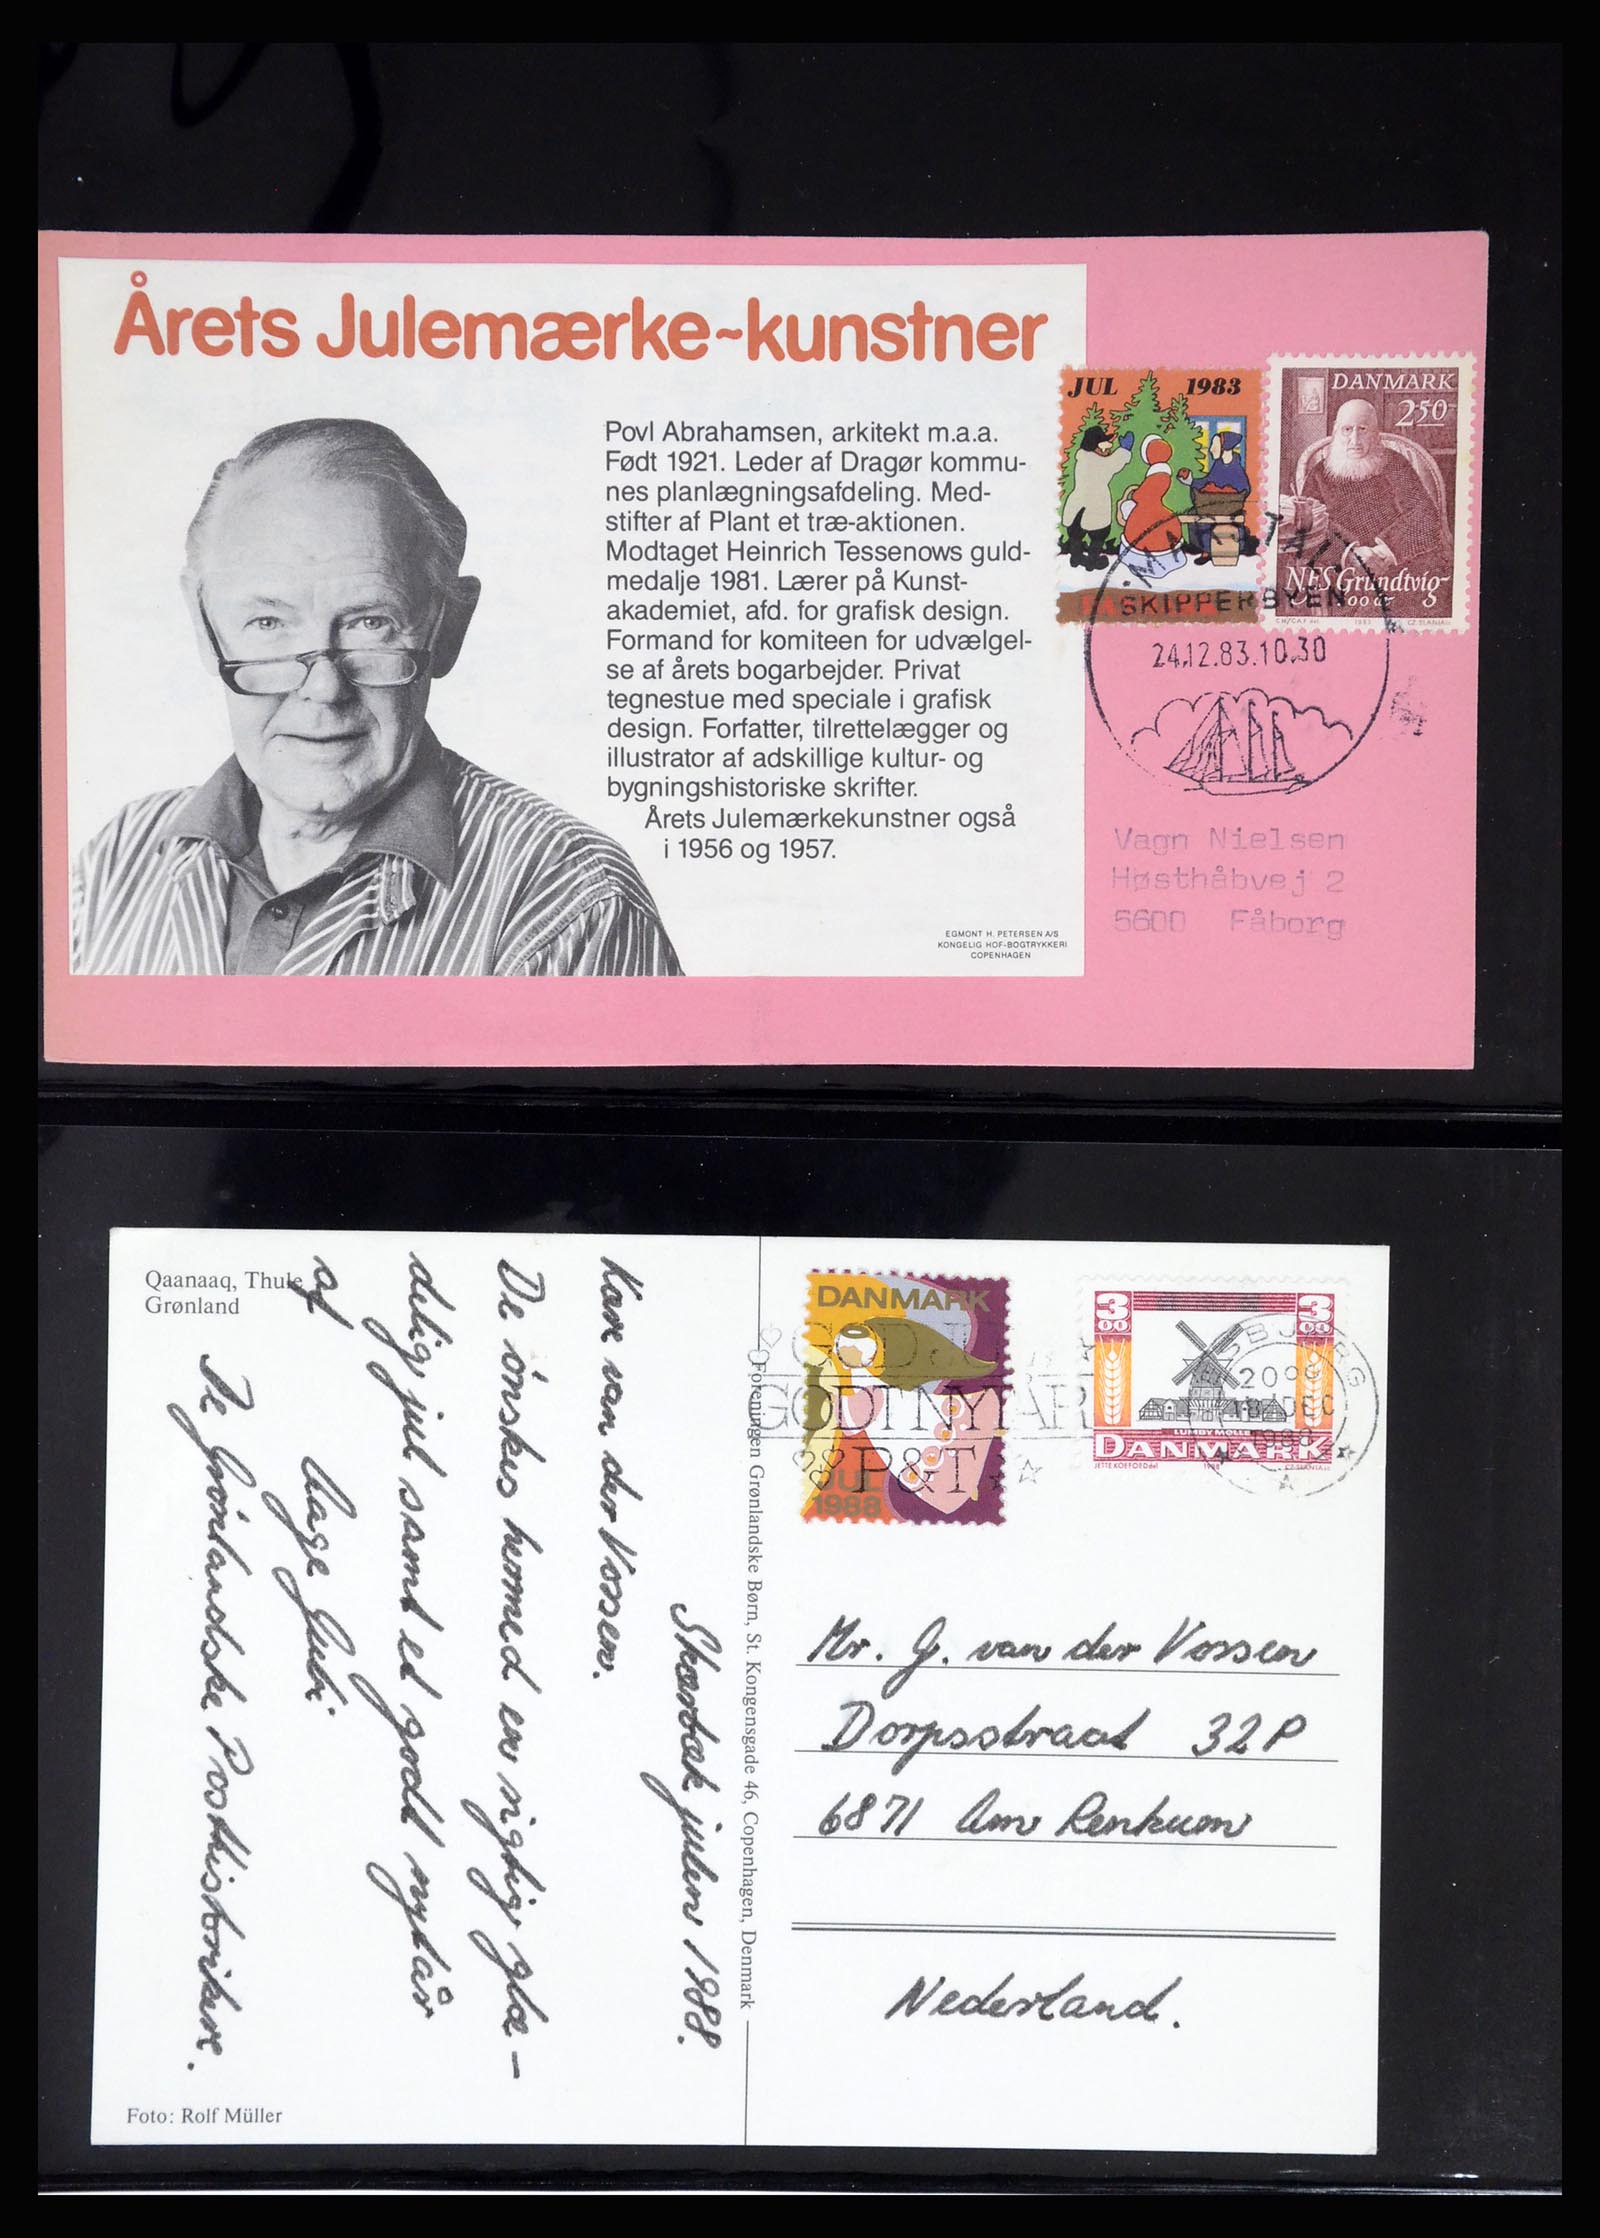 Årets Julemærke-kunstner
Povl Abrahamsen, arkitekt m.a.a.
Født 1921. Leder af Dragør kommu-
nes planlægningsafdeling. Med-
stifter af Plant et træ-aktionen.
Modtaget Heinrich Tessenows guld-
medalje 1981. Lærer på Kunst-
akademiet, afd. for grafisk design.
Formand for komiteen for udvælgel-
se af årets bogarbejder. Privat
tegnestue med speciale i grafisk
design. Forfatter, tilrettelægger og
illustrator af adskillige kultur- og
bygningshistoriske skrifter.
Årets Julemærkekunstner også
i 1956 og 1957.
EGMONT H. PETERSEN A/S
KONGELIG HOF-BOGTRYKKERI
COPENHAGEN
JUL 1983
DANMARK
2.50
NFS Grundtvig
MARSTAL
SKIPPERBYEN
24.12.83.10.30
Vagn Nielsen
Høsthåbvej 2
5600 Fåborg
Qaanaaq, Thule
Grønland
Skærbæk julen 1988.
Kære van der Vossen.
De önskes hermed en rigtig glæ-
delig jul samt et godt nytår
af
Aage
De Grönlandske Posthistorikere.
Foto: Rolf Müller
Foreningen Grønlandske Børn, St. Kongensgade 46, Copenhagen, Denmark
DANMARK
JUL
1988
GOD JUL
GODT NYTÅR
P&T
3 00 3 00
LUMBY MØLLE
DANMARK
JETTE KOEFOED del 1988 CZ.SLANIA sc
20
18 DEC
1988
Mr. G. van der Vossen
Dorpsstraat 32P
6871 Am Renkum
Nederland.